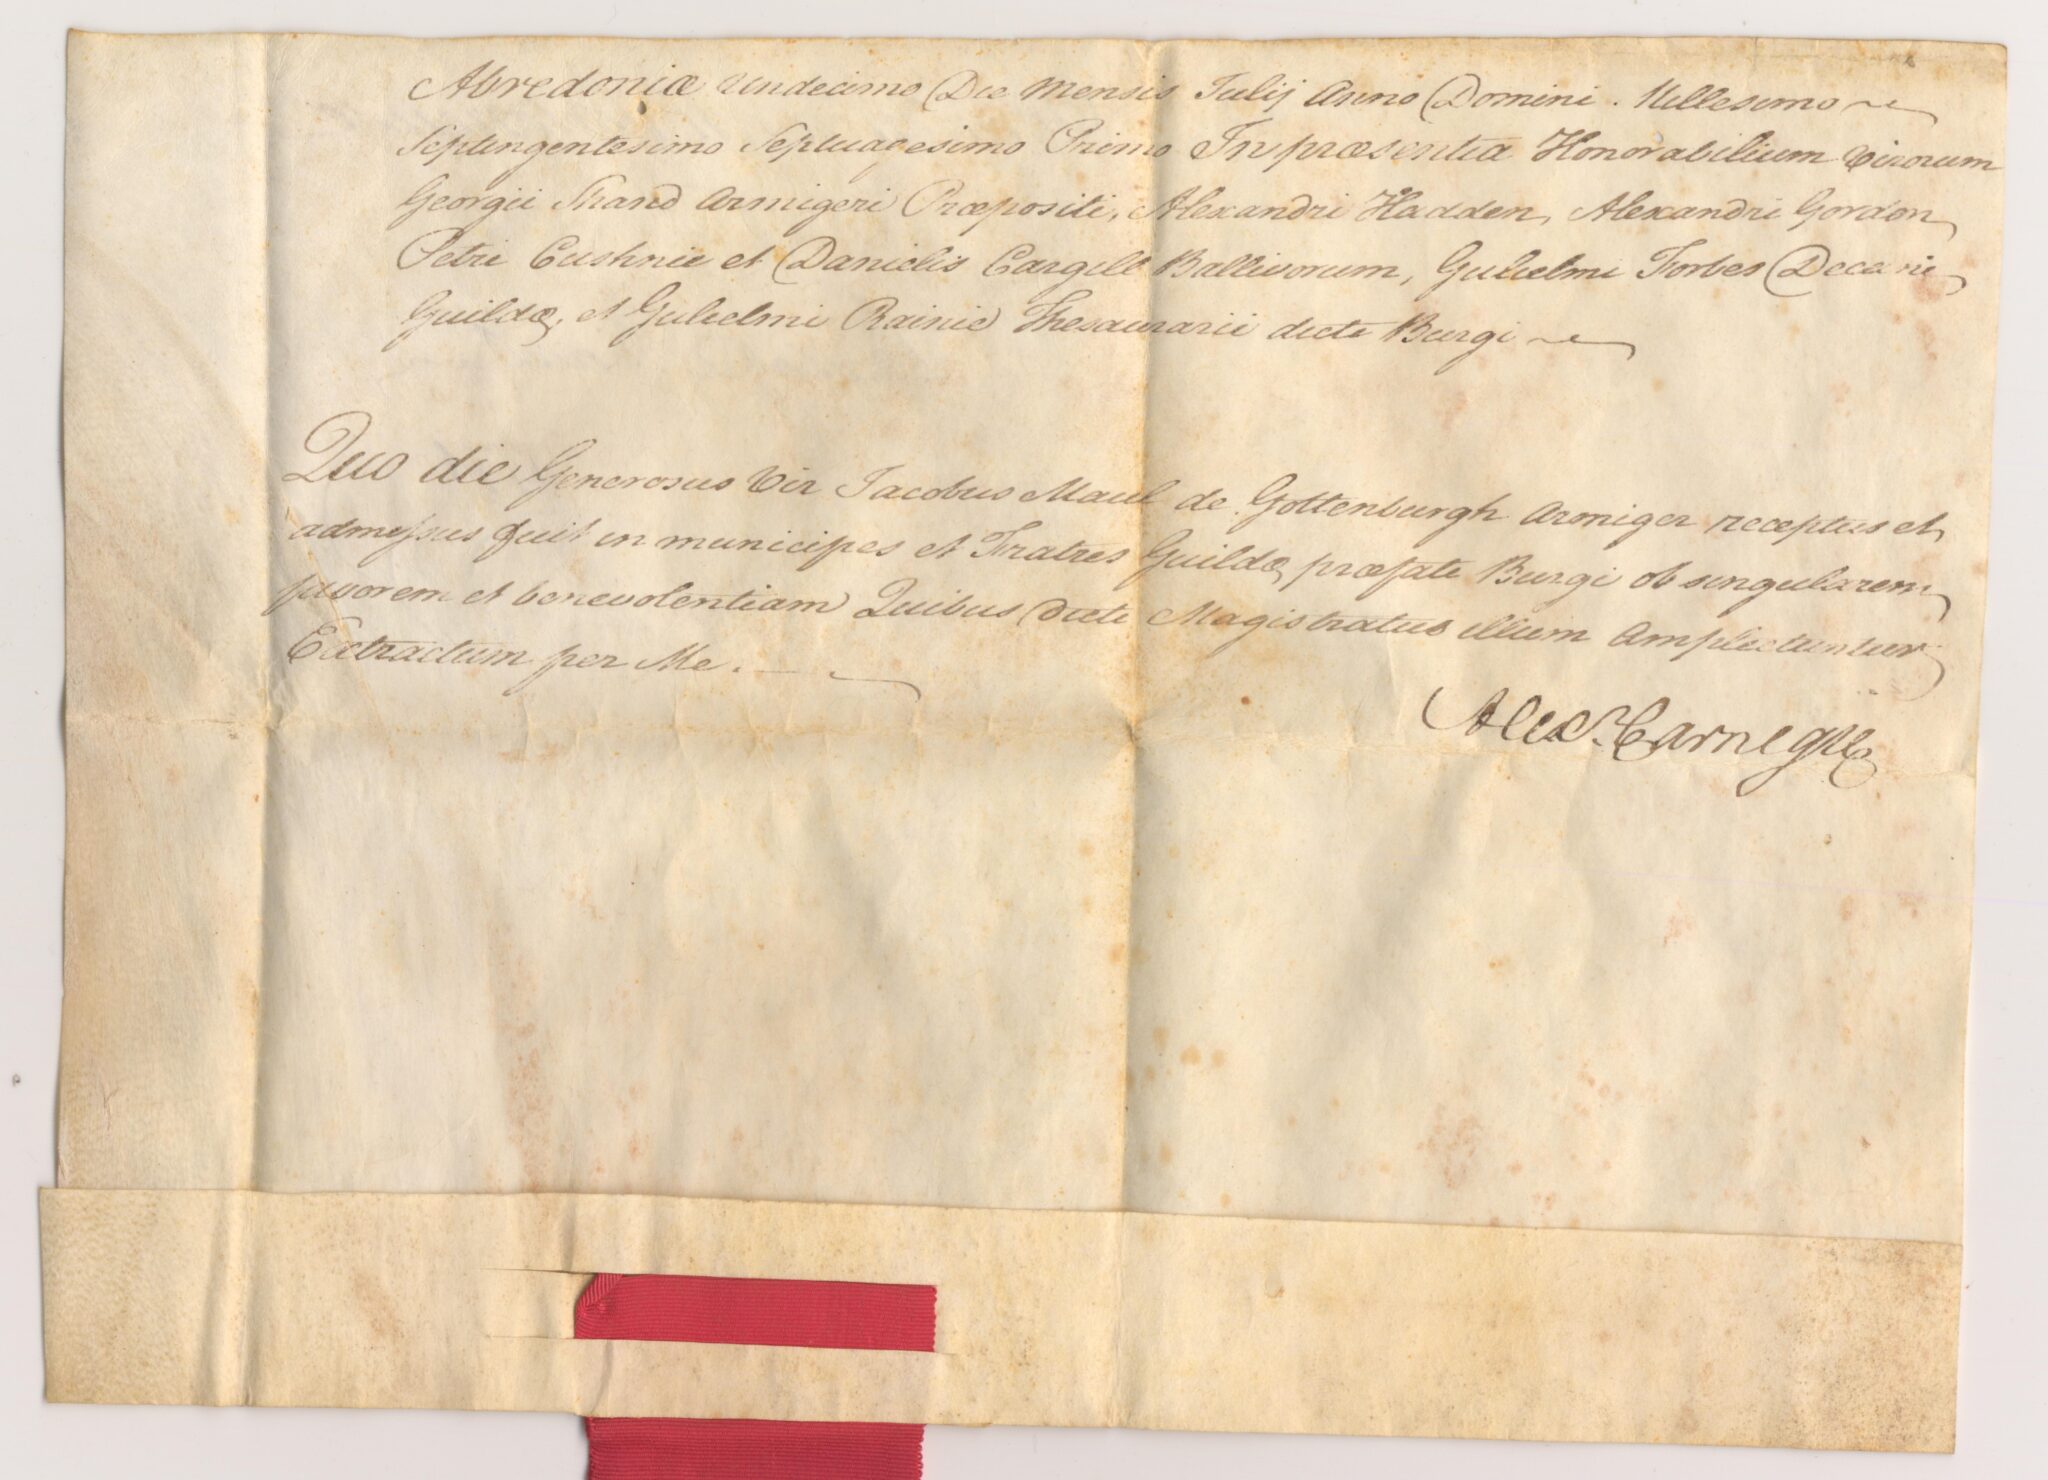 Abredoniæ Undecimo Die Mensis Julij Anno Domini. Millesimo
Septingentesimo Septuagesimo Primo In præsentia Honorabilium Virorum
Georgii Shand Armigeri Præpositi, Alexandri Hadden, Alexandri Gordon
Petri Cushnie et Danielis Cargill Ballivorum, Gulielmi Forbes Decani
Guildæ, et Gulielmi Rainie Thesaurarii dicti Burgi
Quo die Generosus Vir Jacobus Maul de Gottenburgh Armiger receptus et
admissus fuit in municipes et Fratres Guildæ præfati Burgi ob singularem
favorem et benevolentiam Quibus Dicti Magistratus illum Amplectuntur
Extractum per Me.
Alexr. Carnegie